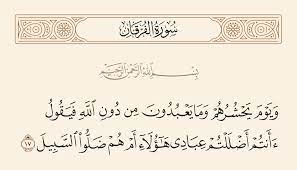 سُورَةُ الفُرۡقَانِ
بِسۡمِ ٱللَّهِ ٱلرَّحۡمَٰنِ ٱلرَّحِيمِ
وَيَوۡمَ يَحۡشُرُهُمۡ وَمَا يَعۡبُدُونَ مِن دُونِ ٱللَّهِ فَيَقُولُ
ءَأَنتُمۡ أَضۡلَلۡتُمۡ عِبَادِي هَٰٓؤُلَآءِ أَمۡ هُمۡ ضَلُّواْ ٱلسَّبِيلَ ١٧